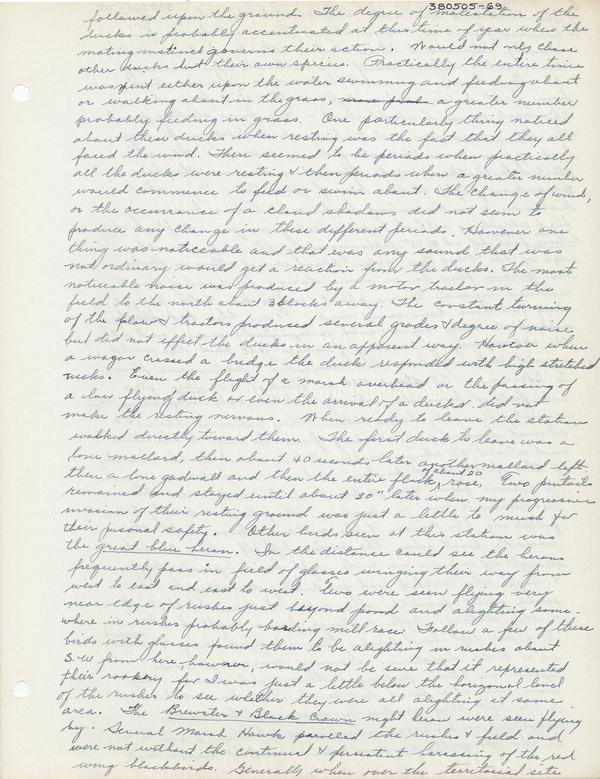 380505-69
followed upon the ground. The degree of molestation of the
ducks is probably accentuated at this time of year when the
mating instinct governs their action. Would not only chase
other ducks but their own species. Practically the entire time
was spent either upon the water swimming and feeding about
or walking about in the grass, a greater number
probably feeding in grass. One particularly thing noticed
about these ducks when resting was the fact that they all
faced the wind. There seemed to be periods when practically
all the ducks were resting & then periods when a greater number
would commence to feed or swim about. The change of wind,
or the occurrance of a cloud shadows did not seem to
produce any change in these different periods. However one
thing was noticeable and that was any sound that was
not ordinary would get a reaction from the ducks. The most
noticeable noise was produced by a motor tractor in the
field to the north about 3 blocks away. The constant turning
of the plow & tractors produced several grades & degree of noise
but did not effect the ducks in an apparent way. However when
a wagon crossed a bridge the duck responded with high stretched
necks. Even the flight of a marsh overhead or the passing of
a low flying duck or even the arrival of a ducks did not
make the resting nervous. When ready to leave the station
walked directly toward them. The first duck to leave was a
lone mallard, then about 40 seconds later another mallard left
then a lone gadwall and then the entire flock of about 20 rose. Two pintails
remained and stayed until about 30" later when my progressive
invasion of their resting ground was just a little to much for
their personal safety. Other birds seen at this station was
the great blue heron. In the distance could see the herons
frequently pass in field of glasses winging their way from
west to east and east to west. Two were seen flying very
near edge of rushes just beyond pond and alighting some-
where in rushes probably bording mill race. Follow a few of these
birds with glasses found them to be alighting in rushes about
S.W from here however, would not be sure that it represented
their rookery for I was just a little below the horizonal level
of the rushes to see whether they were all alighting at same
area. The Brewster & Black Crown night heron were seen flying
by. Several Marsh Hawk paroled the rushes & field and
were not without the continual & persistent harassing of the red
wing blackbirds. Generally when over the territorial site